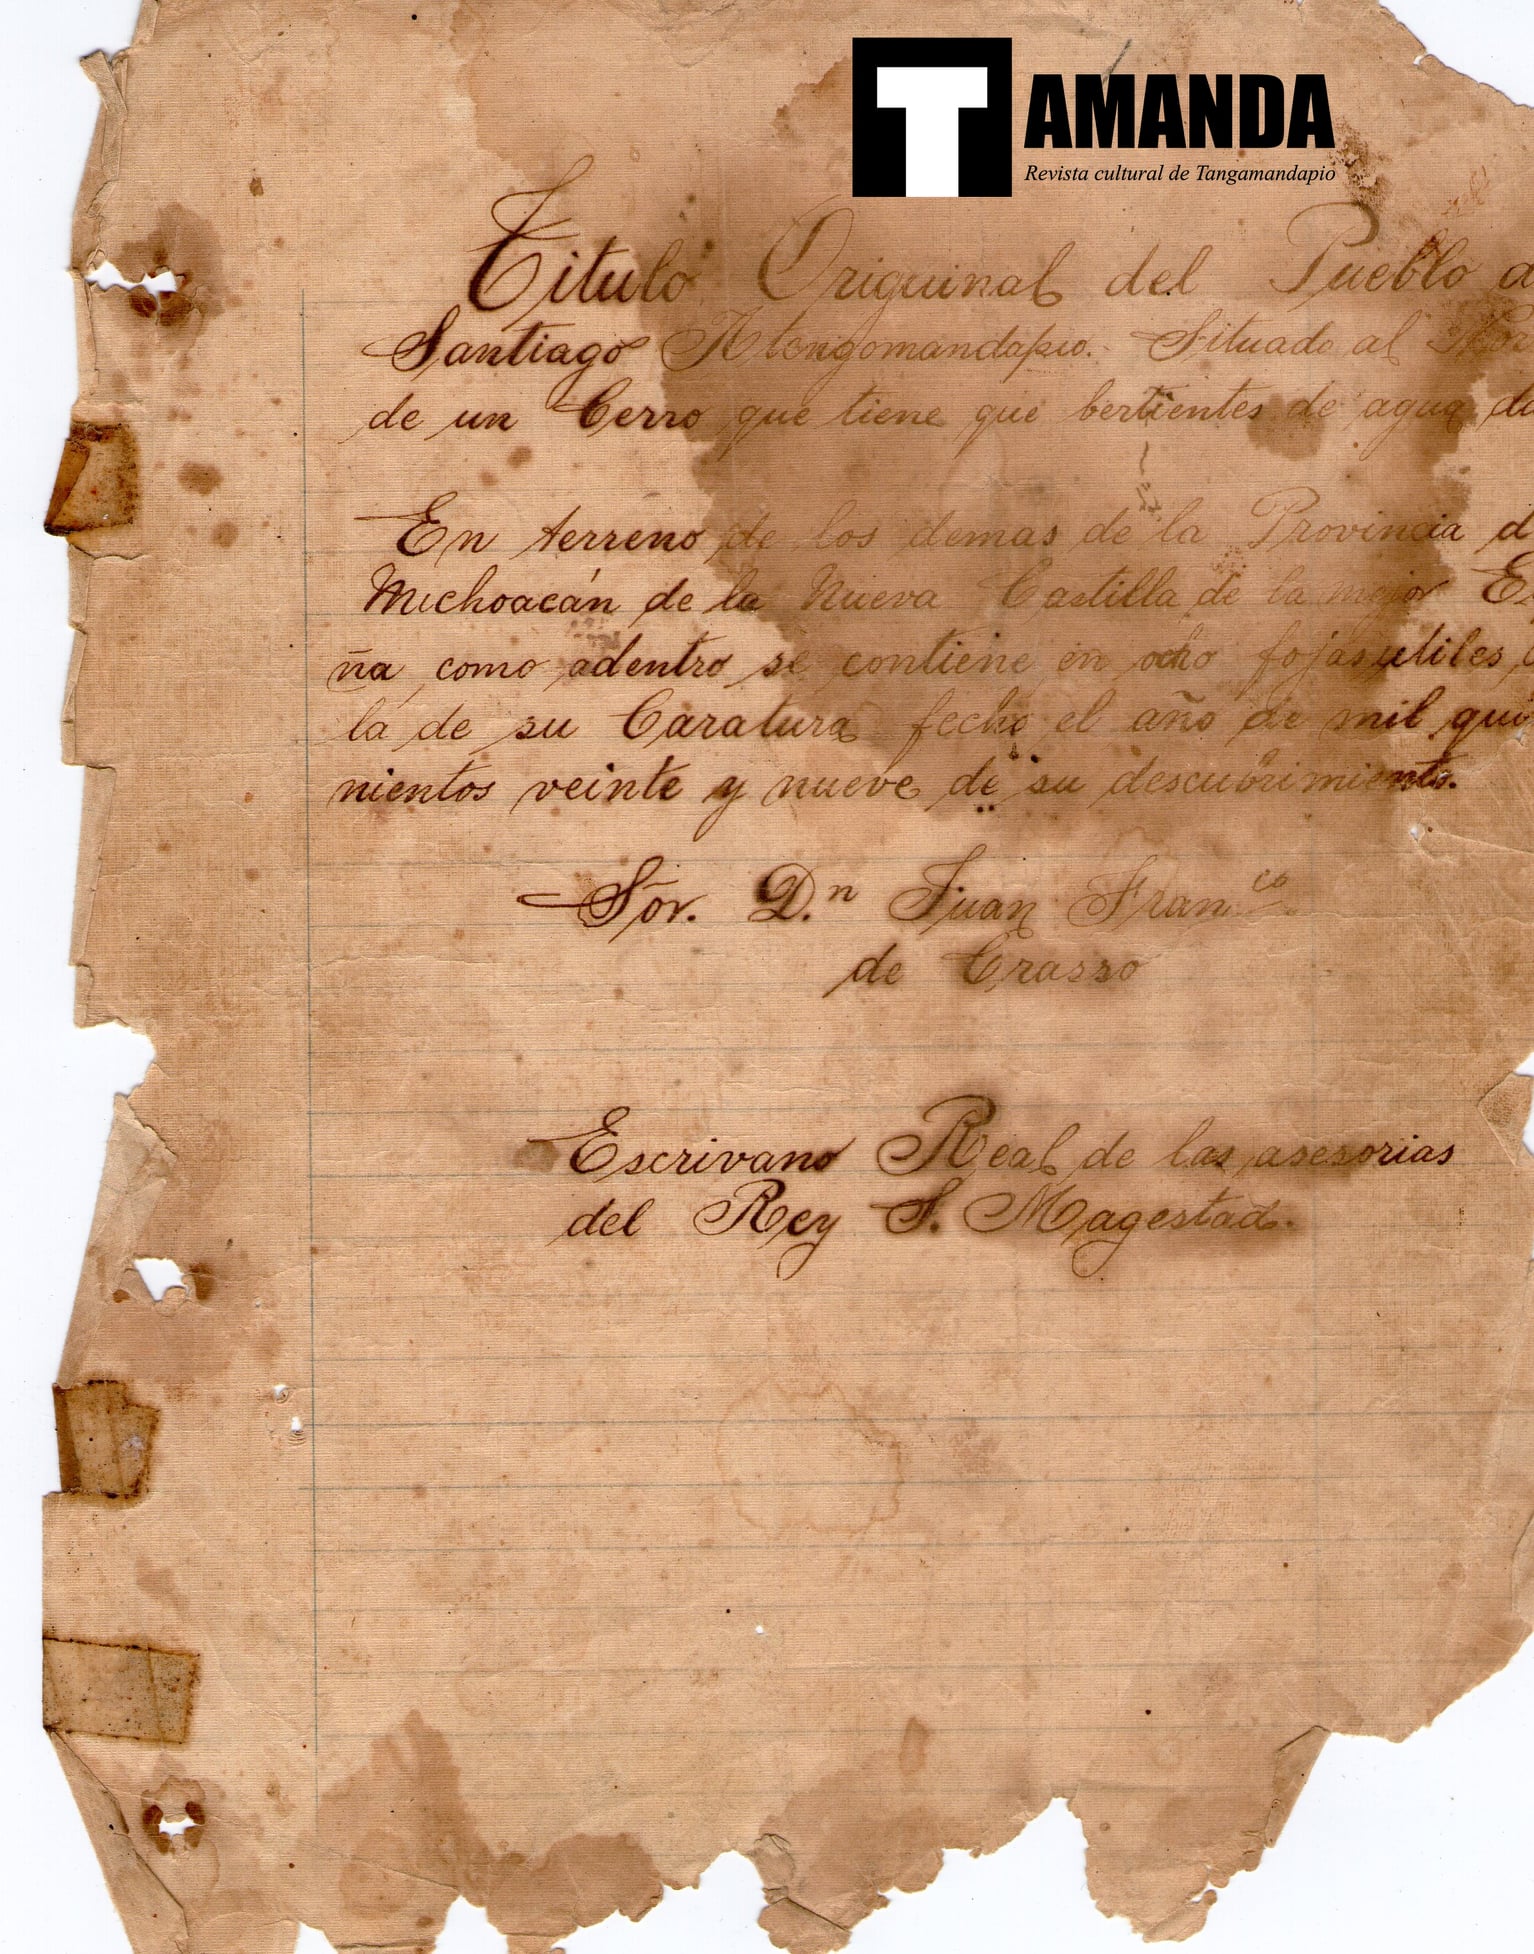 TAMANDA
Revista cultural de Tangamandapio
Titulo Origuinal del Pueblo d
Santiago Atongomandapio. Situado al Nor
de un Cerro que tiene que bertientes de agua da
En terreno de los demas de la Provincia d
Michoacán de la Nueva Castilla de la mejor Es
ña como adentro se contiene en ocho fojas utiles,
la de su Caratura fecho el año de mil qui
nientos veinte y nueve de su descubrimiento.
Sõr. D.n Juan Franco
de Crasso
Escrivano Real de las asesorias
del Rey S. Magestad.